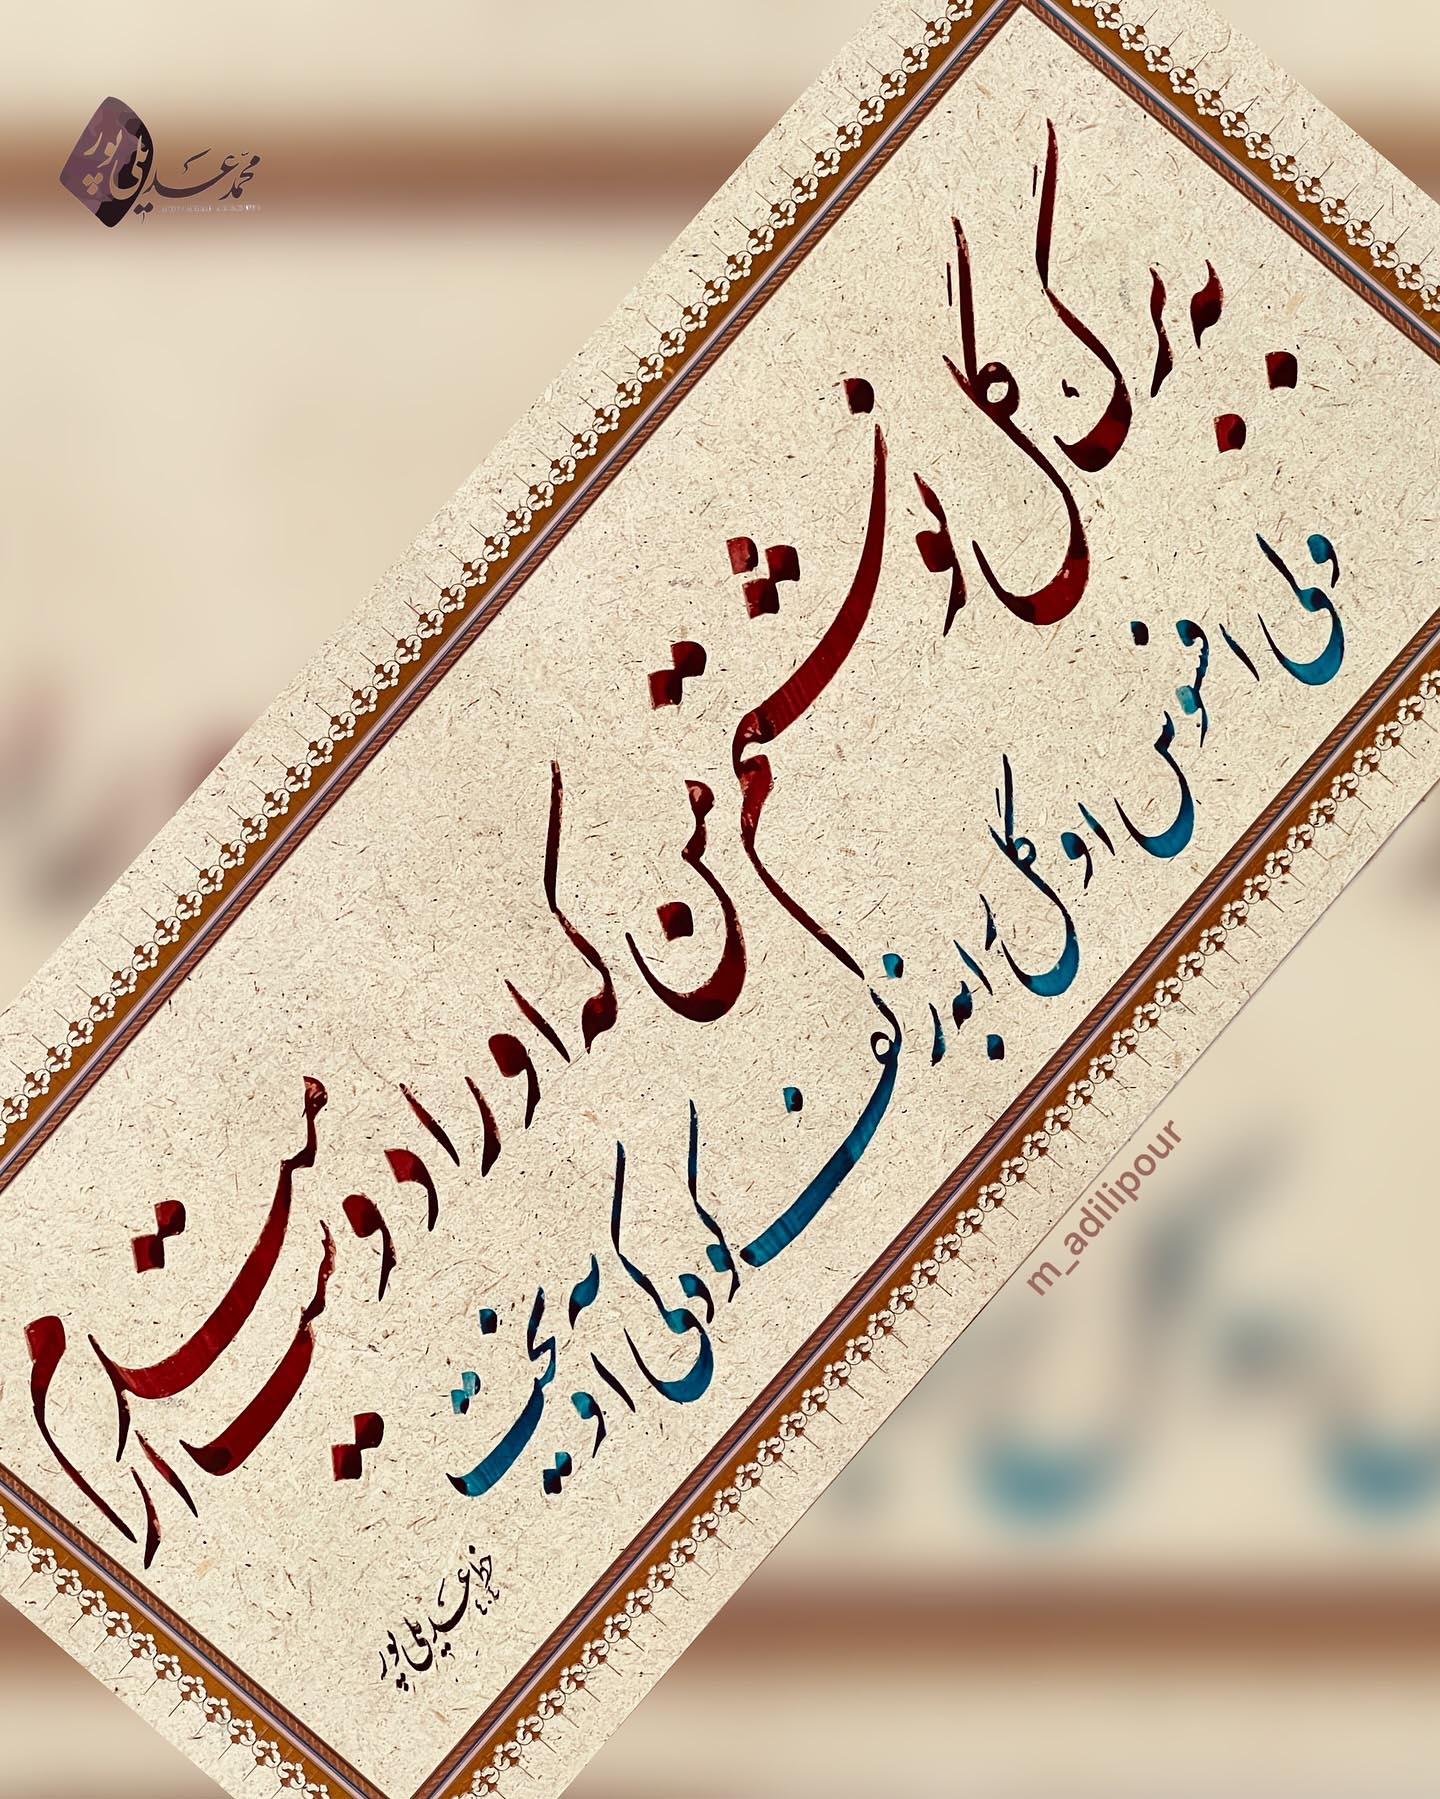 محمد عدیلی پور
به برگ گل نوشتم من که او را دوست می‌دارم
ولی افسوس او گل را به زلف کودکی آویخت
خط عدیلی پور
m_adilipour